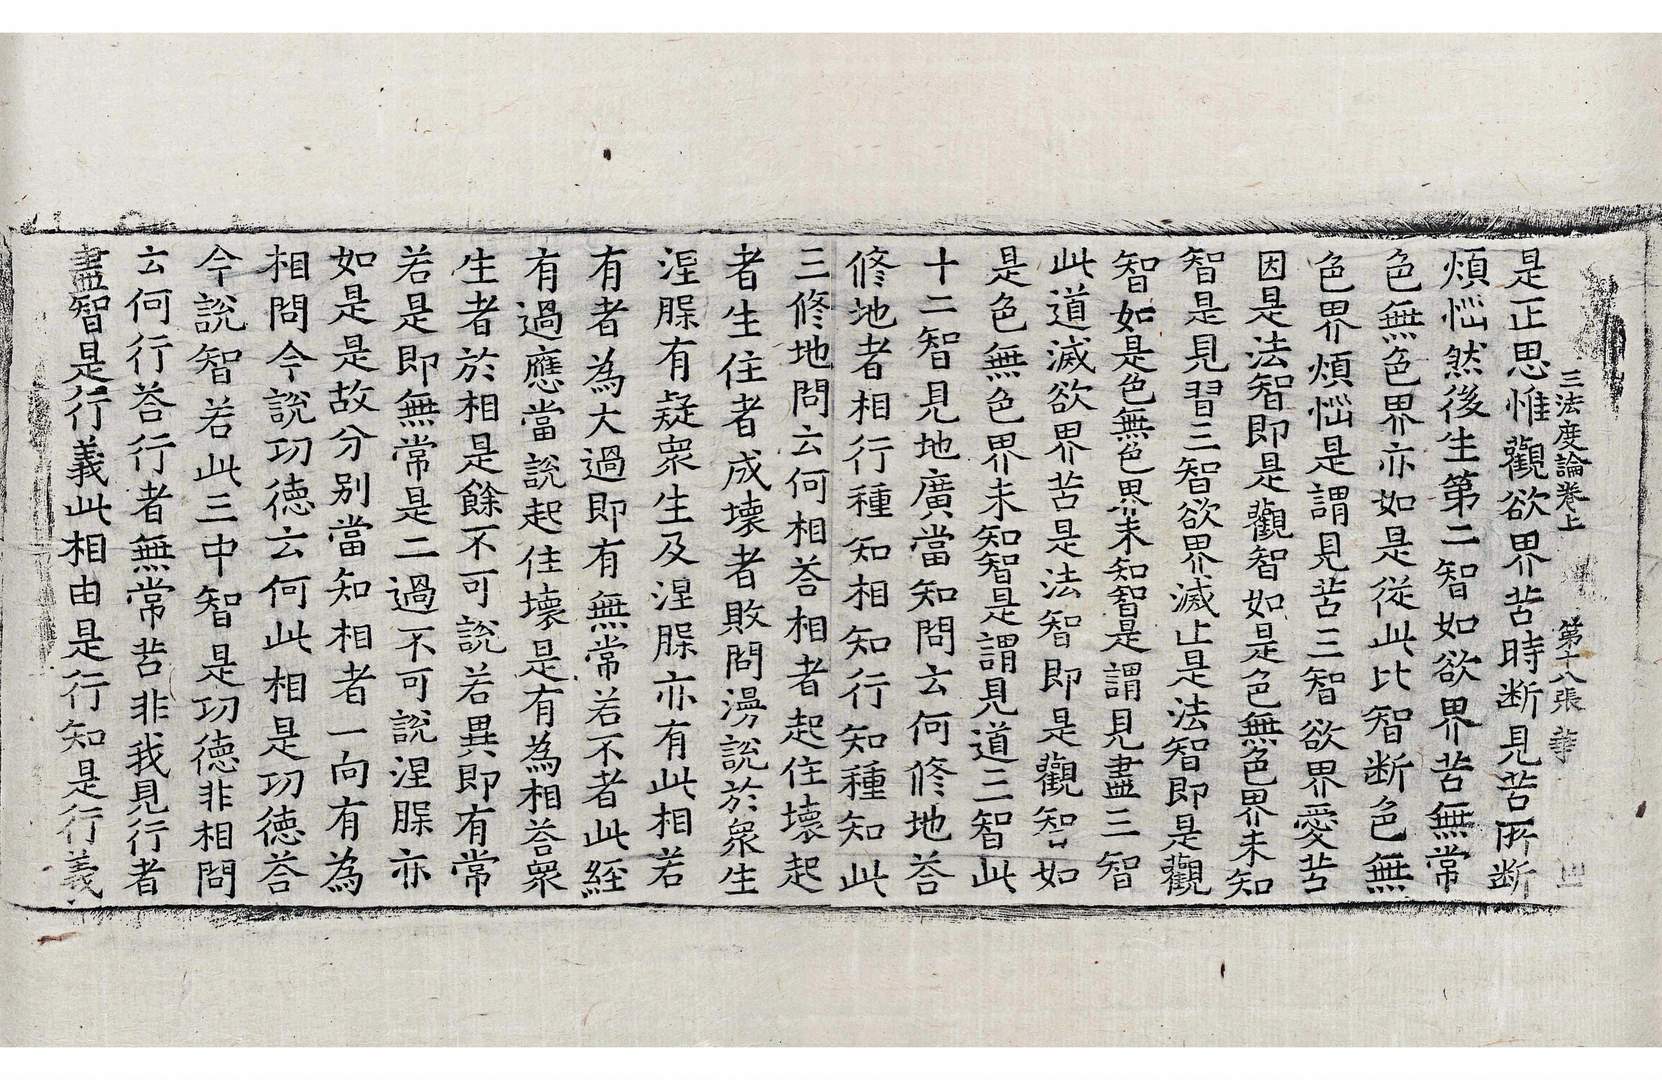 三法度論卷上 第十八張 華
是正思惟觀欲界苦時断見苦所断
煩惱然後生第二智如欲界苦無常
色無色界亦如是從此比智断色無
色界煩惱是謂見苦三智欲界愛苦
因是法智即是觀智如是色無色界未知
智是見習三智欲界滅止是法智即是觀
智如是色無色界未知智是謂見盡三智
此道滅欲界苦是法智即是觀智如
是色無色界未知智是謂見道三智此
十二智見地廣當知問云何修地荅
修地者相行種知相知行知種知此
三修地問云何相荅相者起住壞起
者生住者成壞者敗問湯說於衆生
涅槃有疑衆生及涅槃亦有此相若
有者為大過即有無常若不者此經
有過應當說起住壞是有為相荅衆
生者於相是餘不可說若異即有常
若是即無常是二過不可說涅槃亦
如是是故分別當知相者一向有為
相問今說功德云何此相是功德荅
今說智若此三中智是功德非相問
云何行荅行者無常苦非我見行者
盡智是行義此相由是行知是行義